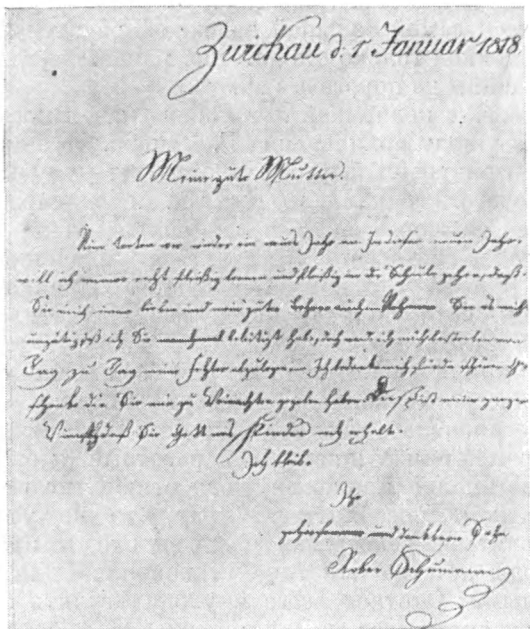 Zwickau d. 1 Januar 1818
Meine gute Mutter.
Nun treten wir wieder ein neues Jahr an In diesen neuen Jahre
will ich immer recht fleißig lernen und fleißig in die Schule gehen, daß
Sie mich immer lieben und mein guter Lehrer auch
ich Sie manchmal beleidigt habe, doch will ich mich bestreben von
Tag zu Tag meine Fehler abzulegen Ich bedanke mich für die schönen Ge
schenke die Sie mir zu Weinachten gegeben haben ist mein ganzer
Wunsch, daß Sie Gott uns Kinder noch erhalte.
Ich bleibe
Ihr
gehorsamer und dankbarer Sohn
Rober Schumann